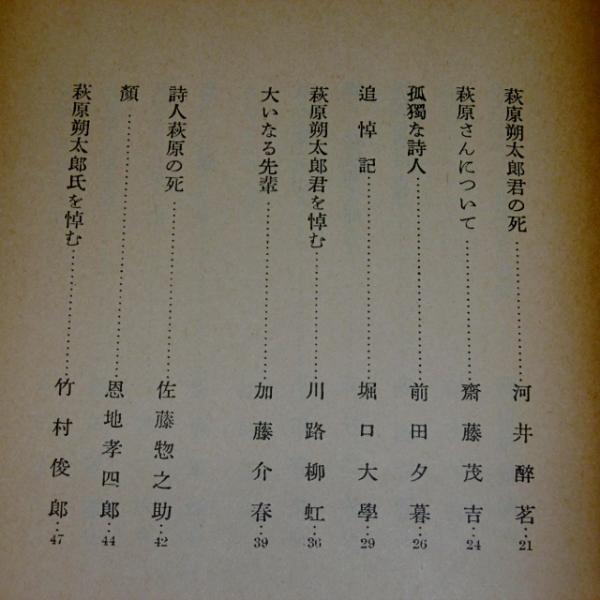 萩原朔太郎君の死……………………河井醉茗…21
萩原さんについて……………………齋藤茂吉…24
孤獨な詩人……………………前田夕暮…26
追悼記……………………堀口大學…29
萩原朔太郎君を悼む……………………川路柳虹…36
大いなる先輩……………………加藤介春…39
詩人萩原の死……………………佐藤惣之助…42
顏……………………恩地孝四郎…44
萩原朔太郎氏を悼む……………………竹村俊郎…47